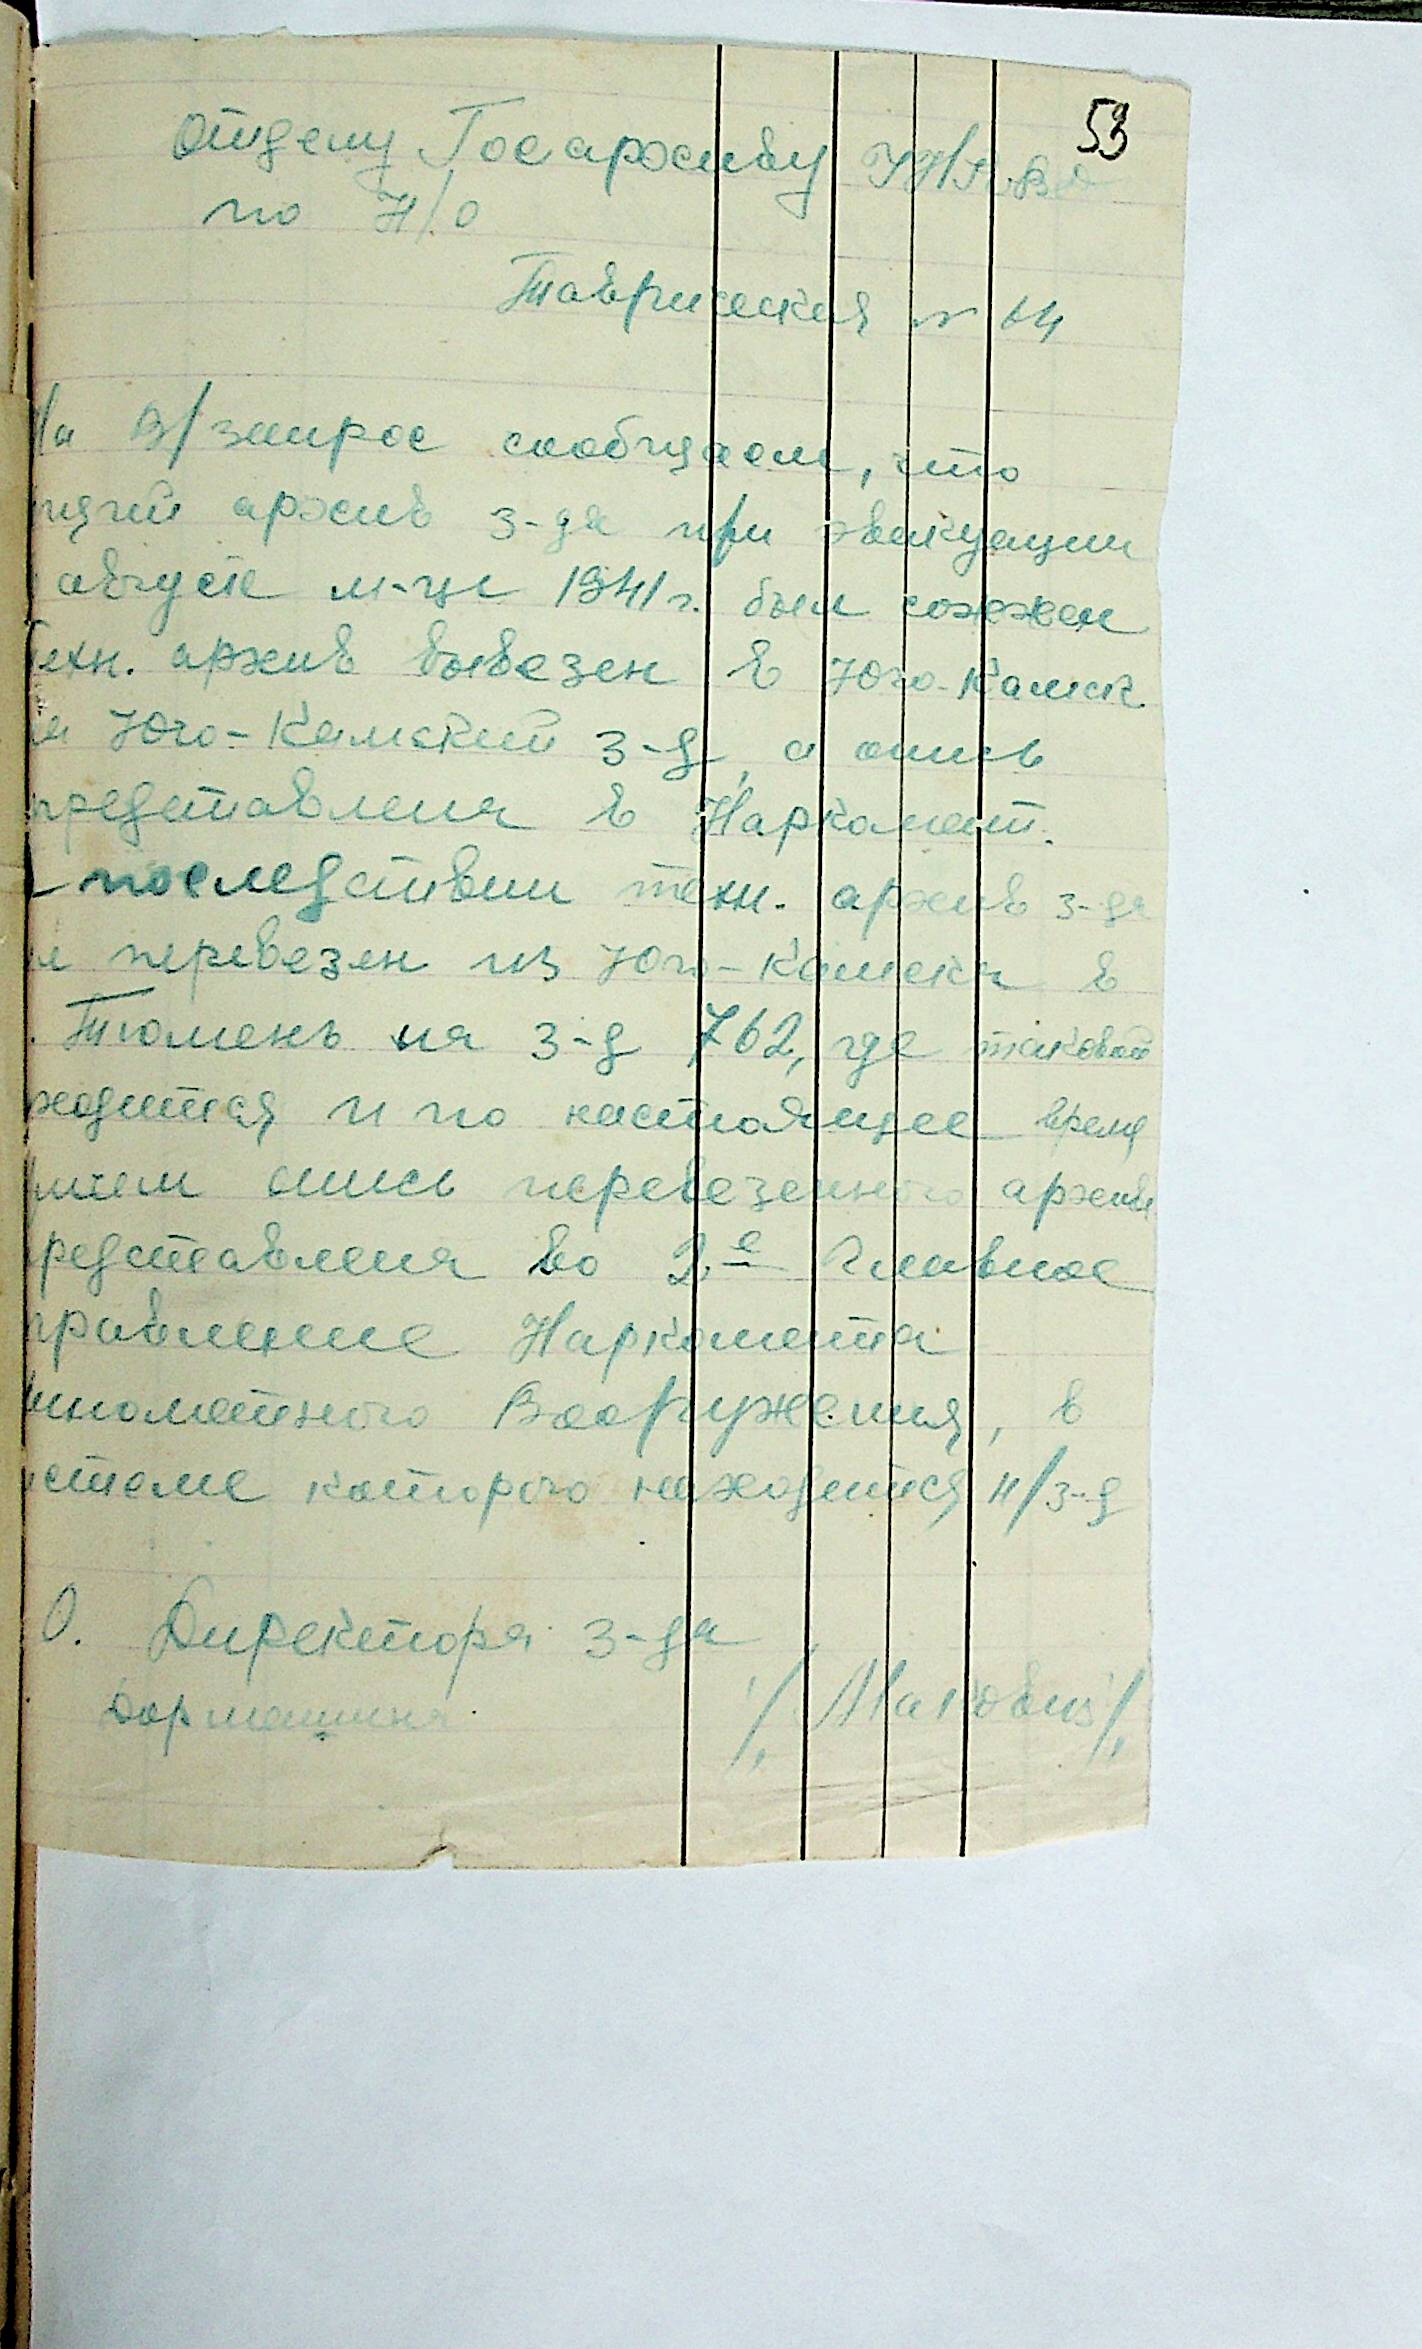 53
Отделу Госархиву УНКВД
по Н/О
Таврическая № 14
На В/запрос сообщаем, что
щий архив з-да при эвакуации
августе м-це 1941 г. был сожжен
Техн. архив вывезен в Юго-Камск
на Юго-Камский з-д, а опись
представлена в Наркомат.
последствии техн. архив з-да
л перевезен из Юго-Камска в
. Тюмень на з-д 762, где таковой
ходится и по настоящее время
причем опись перевезенного архива
представлена во 2-е Главное
правление Наркомата
инометного Вооружения, в
истеме которого находится н/з-д
О. Директора з-да
Дормашина
/Маковиз/